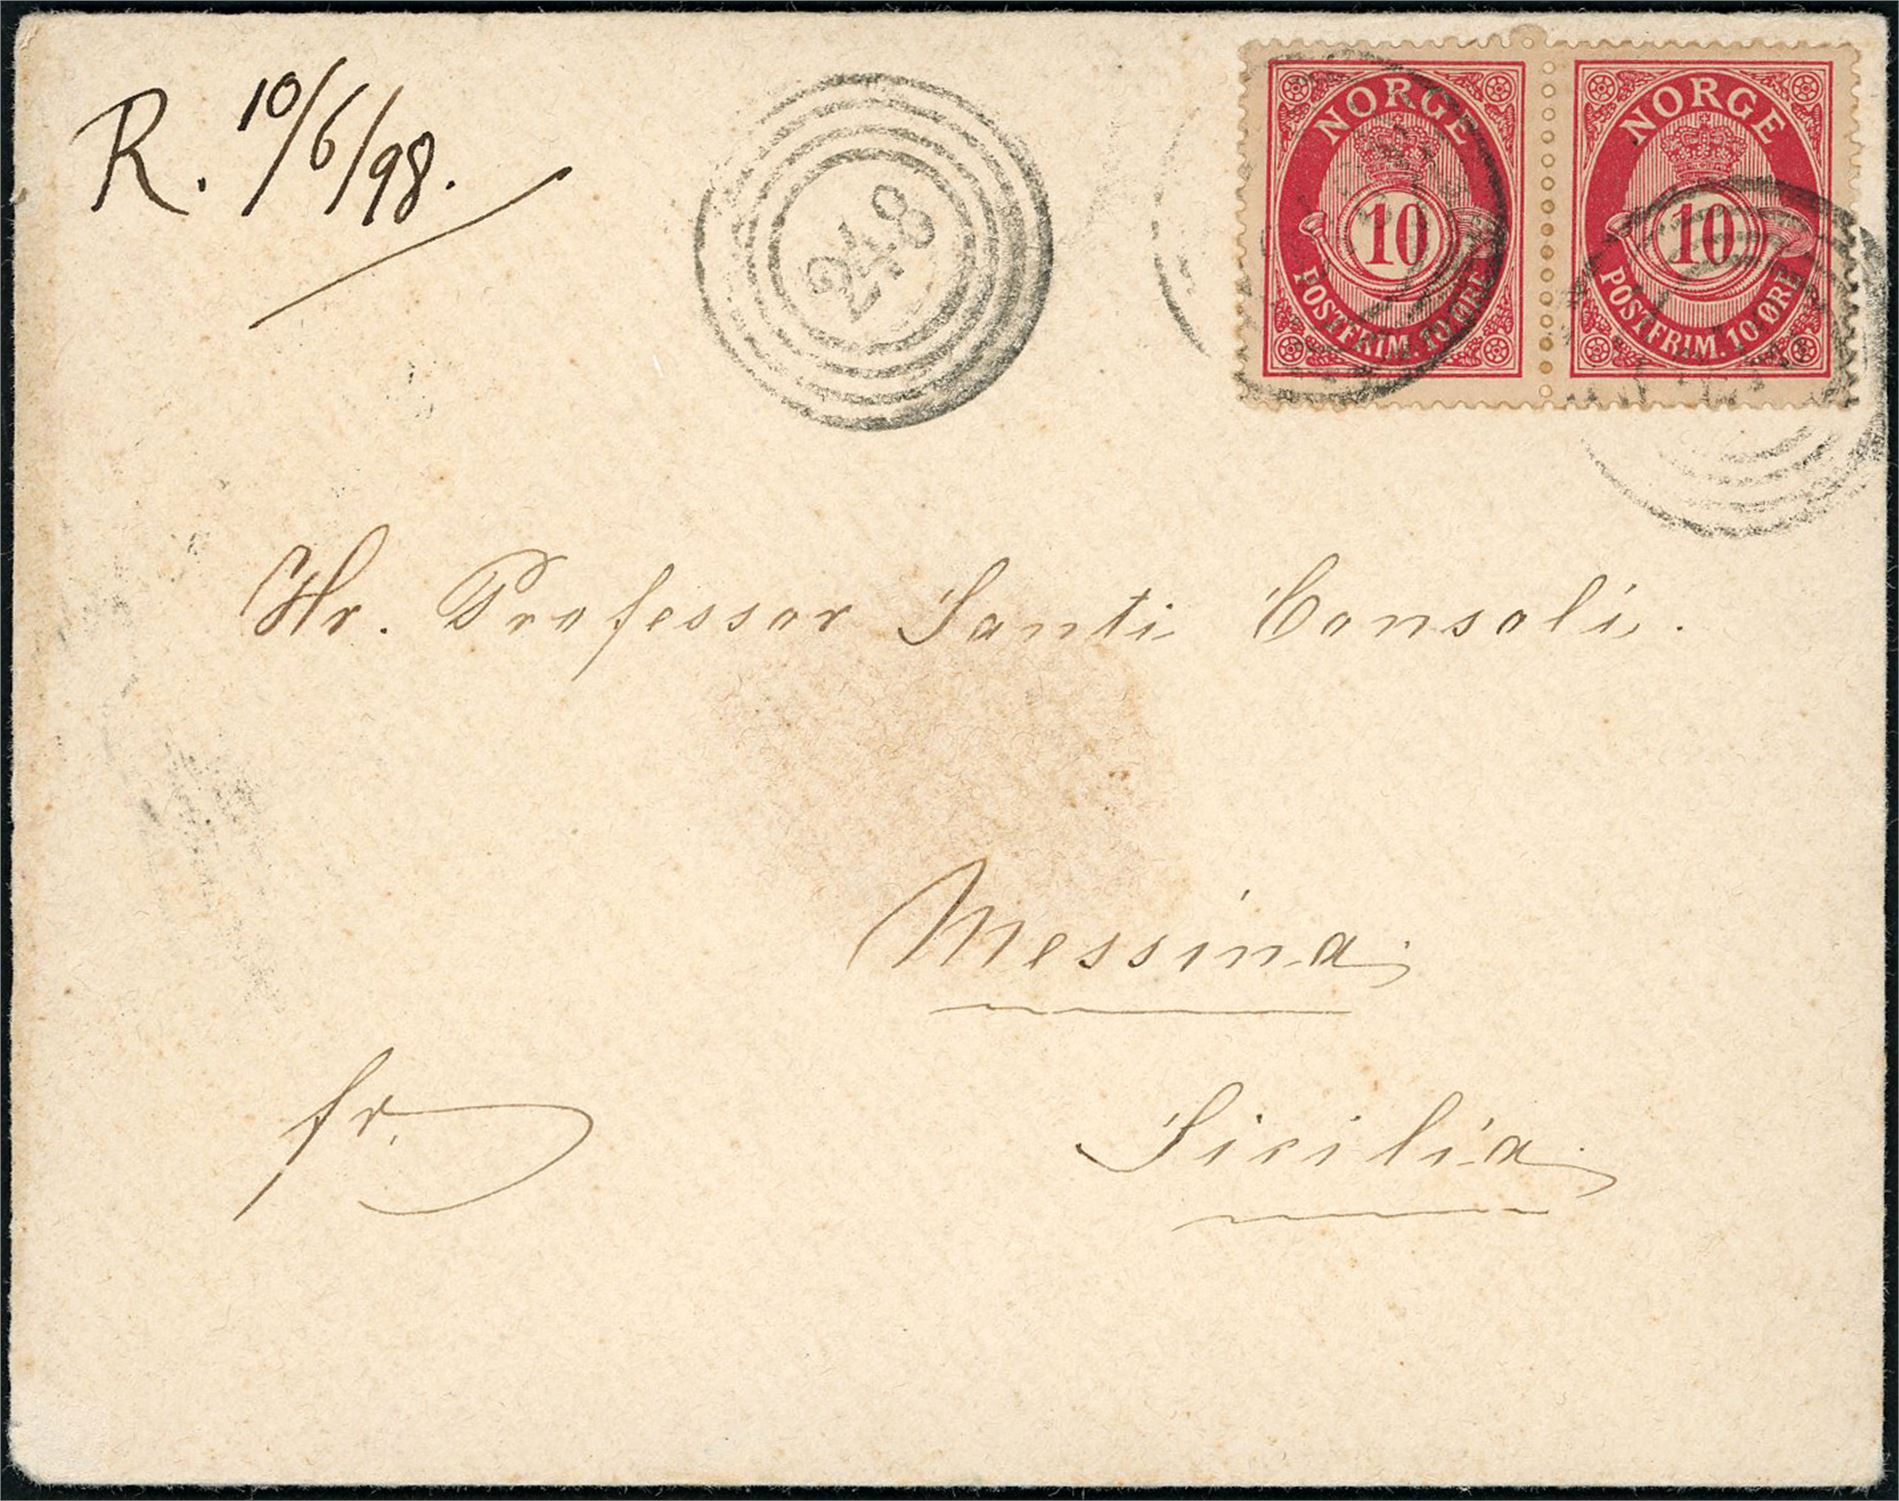 R. 10/6/98.
248
NORGE
10
POSTFRIM. 10 ØRE
NORGE
10
POSTFRIM. 10 ØRE
Hr. Professor Santi Consoli.
Messina.
Sicilia.
fr.